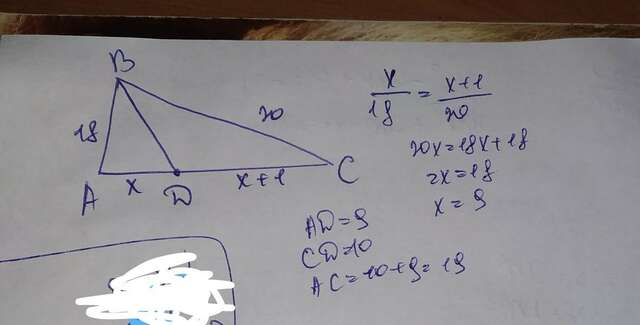 B
18
20
A
x
D
x+1
C
x/18 = x+1/20
20x=18x+18
2x=18
x=9
AD=9
CD=10
AC=10+9=19